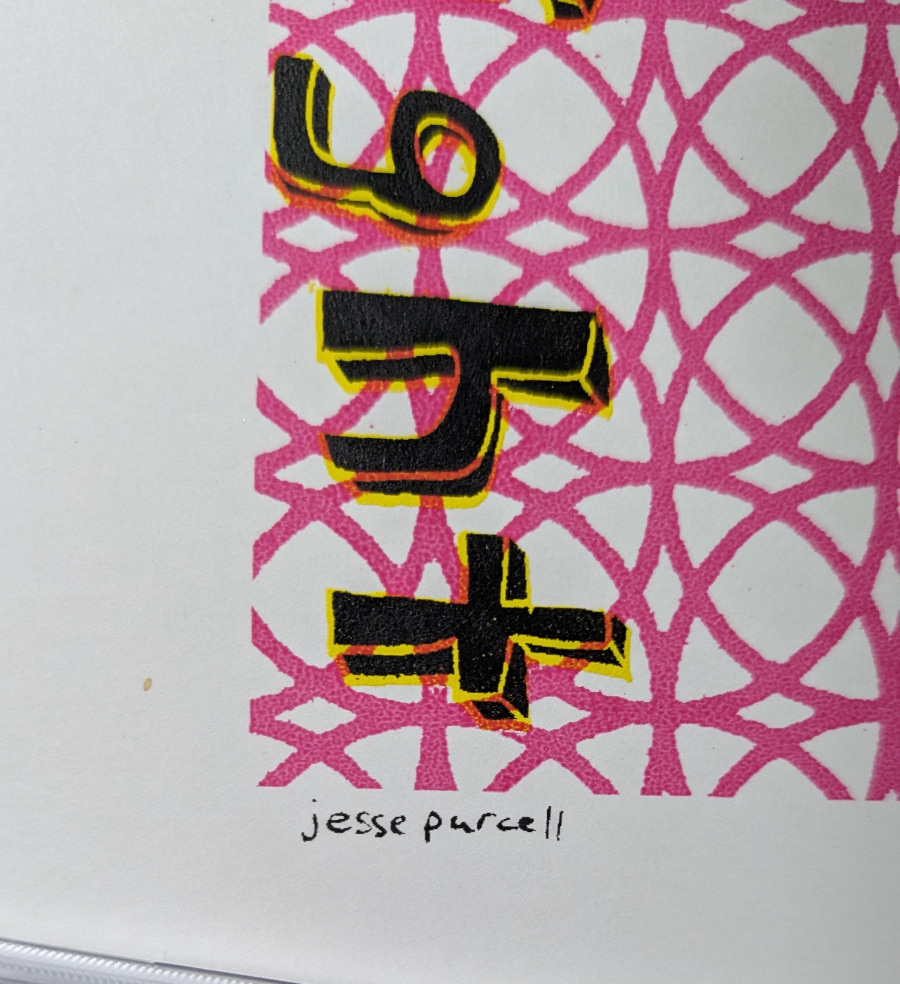 ght
jesse purcell